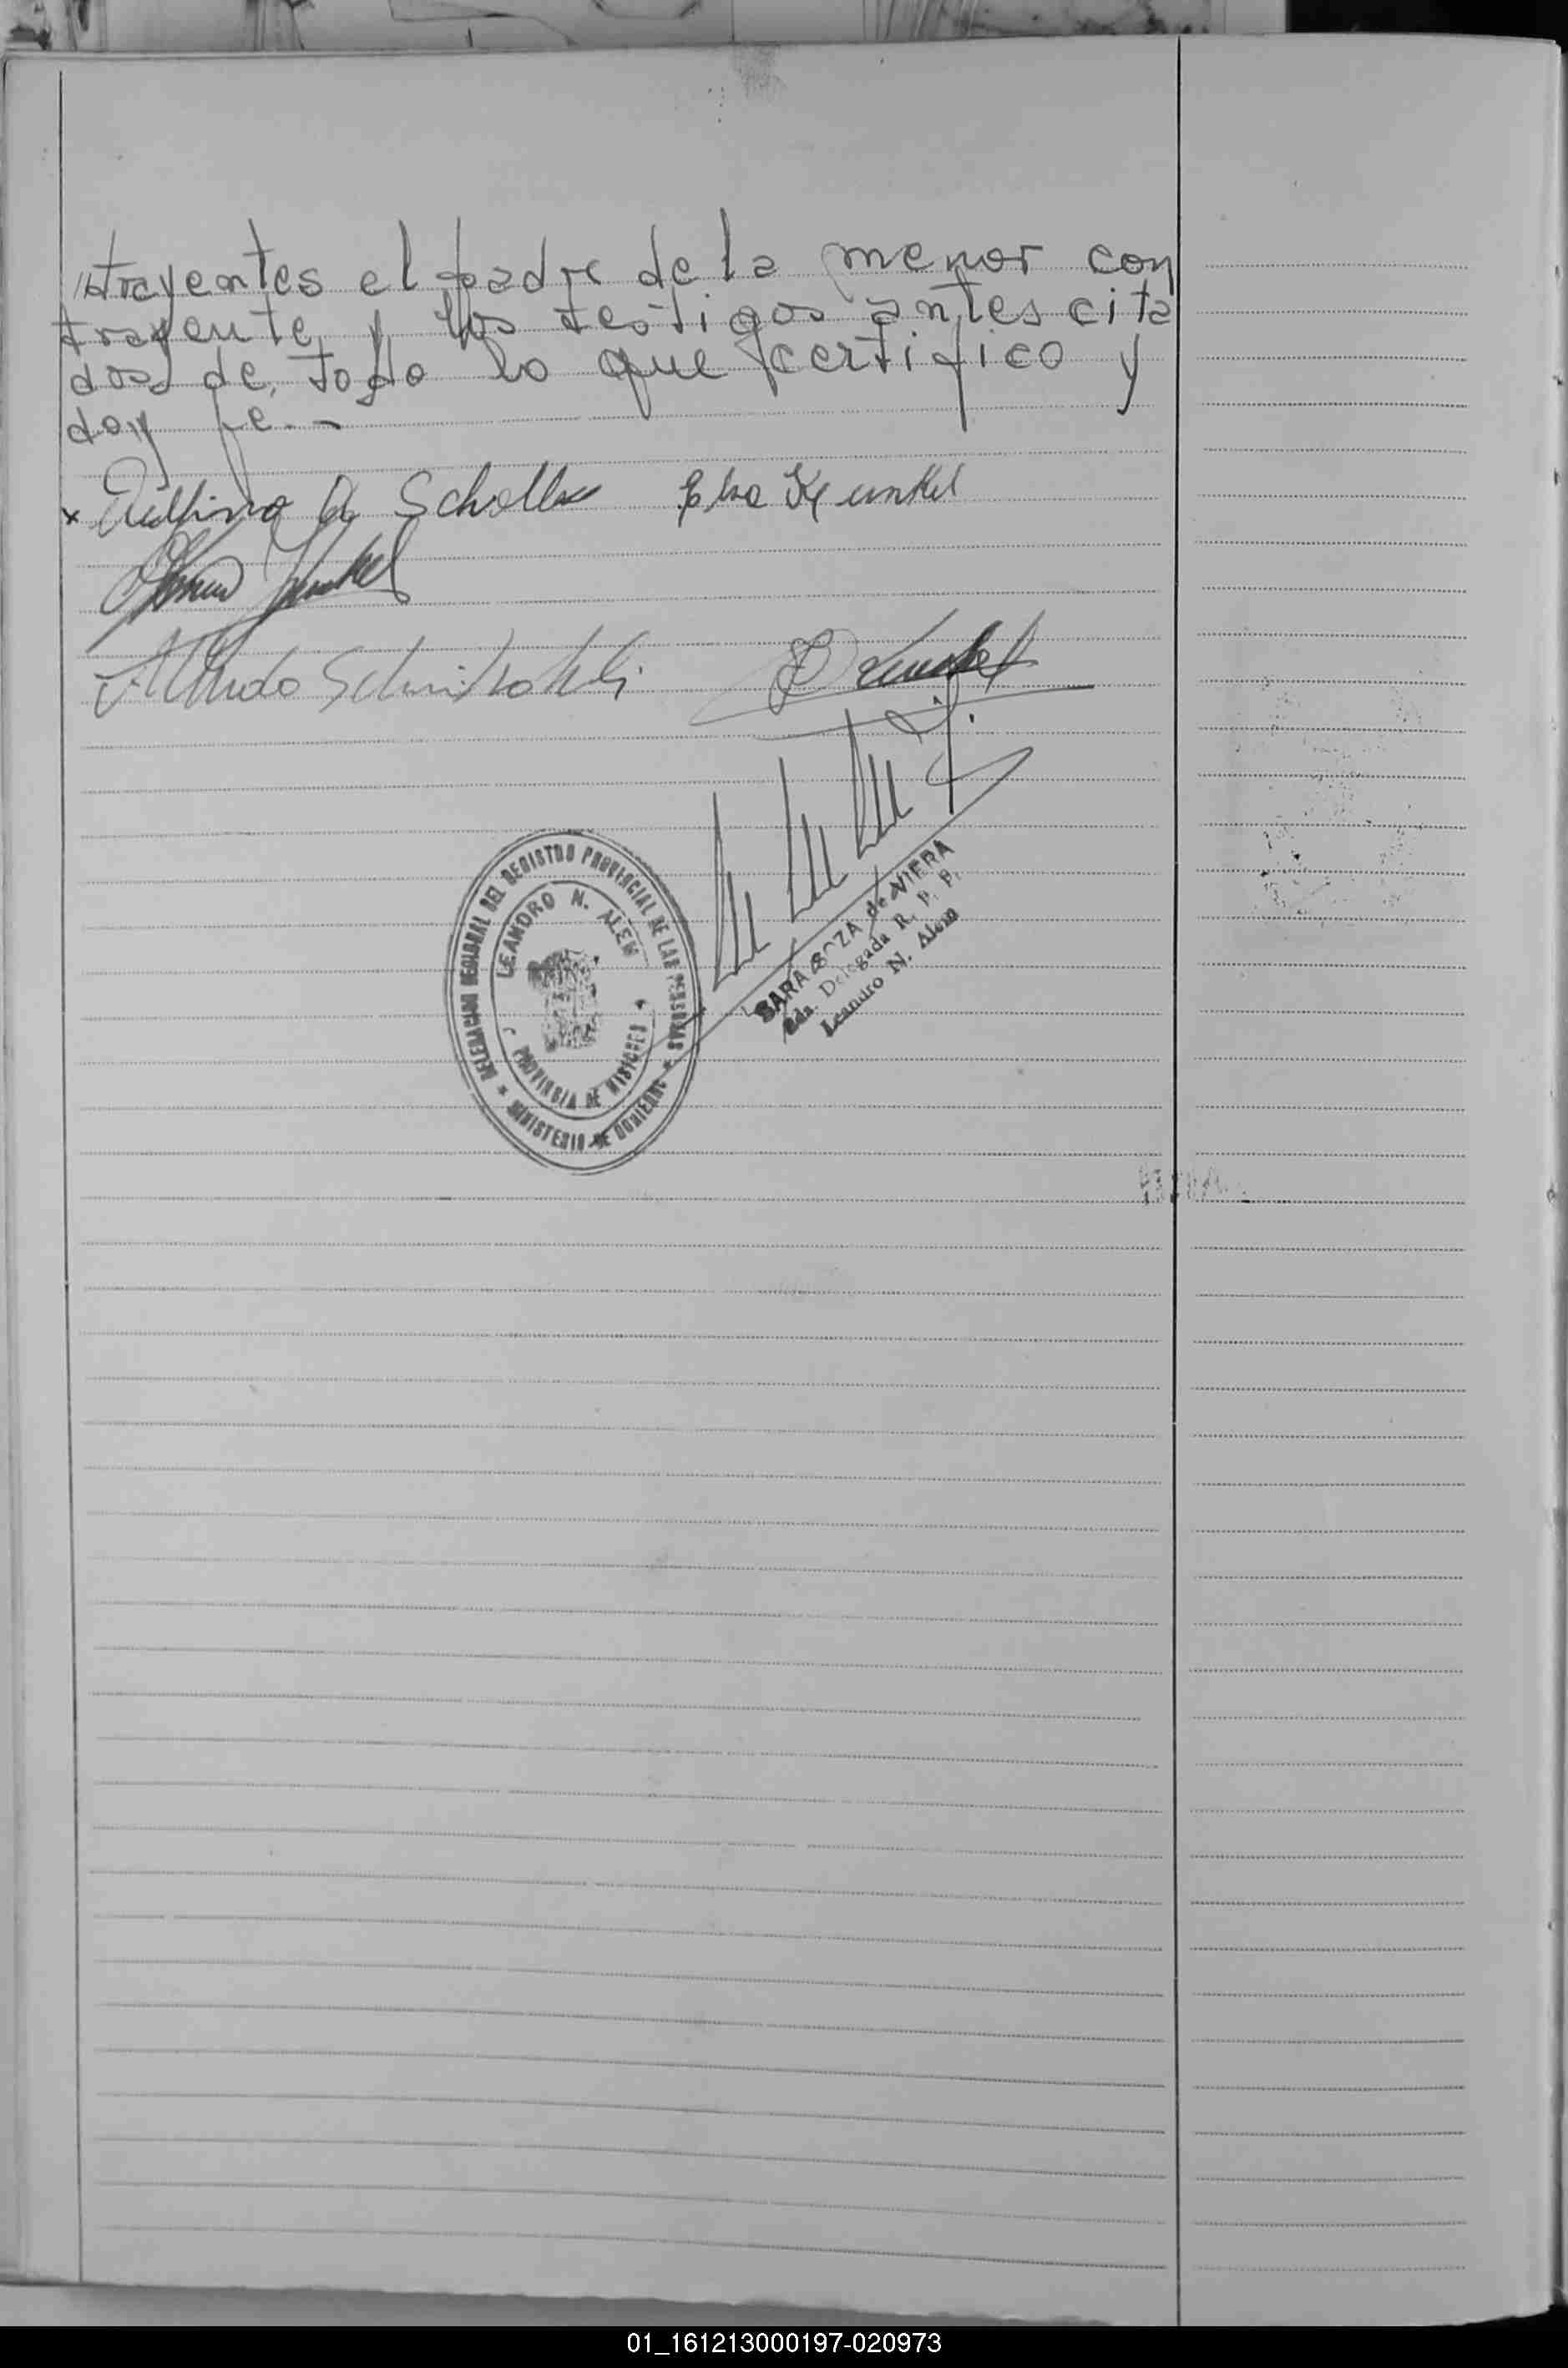 trayentes el padre de la menor con
trayente y los testigos antes cita
dos de todo lo que certifico y
doy fe.-
x A. Scholler Elsa Kunkel
Kunkel
Alfredo
Kunkel
DELEGACION REGIONAL DEL REGISTRO PROVINCIAL DE LAS PERSONAS
LEANDRO N. ALEM
PROVINCIA DE MISIONES
* MINISTERIO DE GOBIERNO *
SARA SOZA de VIERA
Eda. Delegada R. P. P.
Leandro N. Alem
01_161213000197-020973